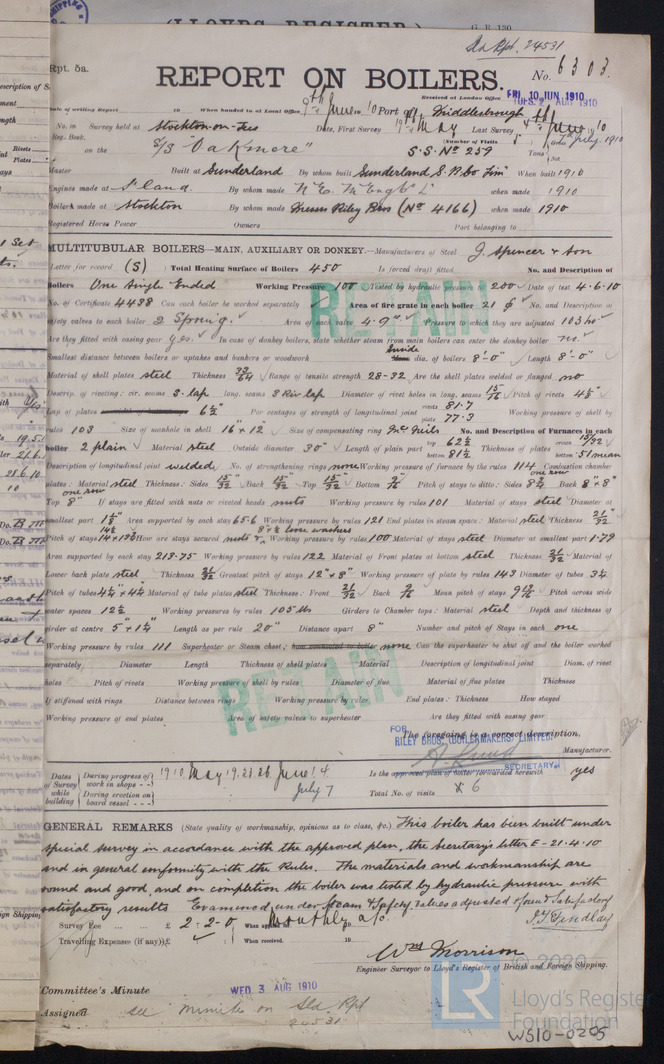 (LLOYDS REGISTER)
Sld Rpt. 24531
Rpt. 5a.
REPORT ON BOILERS.
No. 6303
Received at London Office FRI. 10 JUN 1910
TUES. 2 AUG 1910
Date of writing Report 19 When handed in at Local Office 9th June 1910 Port of Middlesbrough
No. in Reg. Book. Survey held at Stockton-on-Tees Date, First Survey 19th May Last Survey 4th June 1910
July 1910
(Number of Visits
on the S/S "Oakmere" S.S. No 259 Tons
Master Built at Sunderland By whom built Sunderland S.B. Co Lim When built 1910
Engines made at S'land. By whom made N.E. M. Engg Co Ld when made 1910
Boilers made at Stockton By whom made Messrs Riley Bros (No 4166) when made 1910
Registered Horse Power Owners Port belonging to
MULTITUBULAR BOILERS—MAIN, AUXILIARY OR DONKEY.—Manufacturers of Steel J. Spencer & Son
Letter for record (S) Total Heating Surface of Boilers 450 Is forced draft fitted No. and Description of
Boilers One Single Ended Working Pressure 100 Tested by hydraulic pressure to 200 Date of test 4-6-10
No. of Certificate 4488 Can each boiler be worked separately Area of fire grate in each boiler 21 No. and Description of
safety valves to each boiler 2 Spring. Area of each valve 4.9" Pressure to which they are adjusted 103 lbs
Are they fitted with easing gear yes. In case of donkey boilers, state whether steam from main boilers can enter the donkey boiler no
Smallest distance between boilers or uptakes and bunkers or woodwork Inside dia. of boilers 8'-0" Length 8'-0"
Material of shell plates steel Thickness 33/64 Range of tensile strength 28-32 Are the shell plates welded or flanged no
Descrip. of riveting: cir. seams S. lap long. seams 3 Riv lap Diameter of rivet holes in long. seams 15/16 Pitch of rivets 4 1/2"
Lap of plates 6 1/2" Per centages of strength of longitudinal joint rivets 81.7 plate 77.3 Working pressure of shell by
rules 103 Size of manhole in shell 16" x 12" Size of compensating ring McNeils No. and Description of Furnaces in each
boiler 2 plain Material steel Outside diameter 30" Length of plain part top 62 1/2 bottom 81 1/2 Thickness of plates crown 15/32 bottom .51 mean
Description of longitudinal joint welded No. of strengthening rings none Working pressure of furnace by the rules 114 Combustion chamber
plates: Material steel Thickness: Sides 15/32 Back 15/32 Top 15/32 Bottom 9/16 Pitch of stays to ditto: Sides 8 3/4 Back 8" x 8"
Top one row 8" If stays are fitted with nuts or riveted heads nuts Working pressure by rules 101 Material of stays steel Diameter at
smallest part 1 1/8" Area supported by each stay 65.6 Working pressure by rules 121 End plates in steam space: Material steel Thickness 21/32
Pitch of stays How are stays secured nuts & loose washers Working pressure by rules 100 Material of stays steel Diameter at smallest part 1.79
Area supported by each stay 213.75 Working pressure by rules 122 Material of Front plates at bottom steel Thickness 21/32 Material of
Lower back plate steel Thickness 21/32 Greatest pitch of stays 12" x 8" Working pressure of plate by rules 143 Diameter of tubes 3 1/4
Pitch of tubes 4 1/2" x 4 1/2" Material of tube plates steel Thickness: Front 21/32 Back 9/16 Mean pitch of stays Pitch across wide
water spaces 12 1/2 Working pressures by rules 105 lbs Girders to Chamber tops: Material steel Depth and thickness of
girder at centre 5" x 1 1/4" Length as per rule 20" Distance apart 8" Number and pitch of Stays in each one
Working pressure by rules 111 Superheater or Steam chest; how connected to boiler none Can the superheater be shut off and the boiler worked
separately Diameter Length Thickness of shell plates Material Description of longitudinal joint Diam. of rivet
holes Pitch of rivets Working pressure of shell by rules Diameter of flue Material of flue plates Thickness
If stiffened with rings Distance between rings Working pressure by rules End plates: Thickness How stayed
Working pressure of end plates Area of safety valves to superheater Are they fitted with easing gear
RETAIN
RETAIN
The foregoing is a correct description,
FOR RILEY BROS. (BOILERMAKERS) LIMITED.
Manufacturer.
SECRETARY.
Dates of Survey while building
During progress of work in shops 1910 May 19. 23. 26. June 1. 4.
During erection on board vessel July 7
Is the approved plan of boiler forwarded herewith yes
Total No. of visits 6
GENERAL REMARKS (State quality of workmanship, opinions as to class, &c.) This boiler has been built under
special survey in accordance with the approved plan, the Secretary's letter E-21-4-10
and in general conformity with the Rules. The materials and workmanship are
sound and good, and on completion the boiler was tested by hydraulic pressure with
satisfactory results Examined under Steam & Safety Valves adjusted & found Satisfactory
J.T. Findlay
Survey Fee £ 2-2-0 When applied for Monthly a/c. 19
Travelling Expenses (if any) £ When received. 19
Wm Morrison
Engineer Surveyor to Lloyd's Register of British and Foreign Shipping.
Committee's Minute WED. 3 AUG 1910
Assigned see minute on Sld. Rpt
24531
© 2020
LR
Lloyd's Register
Foundation
WS10-0205